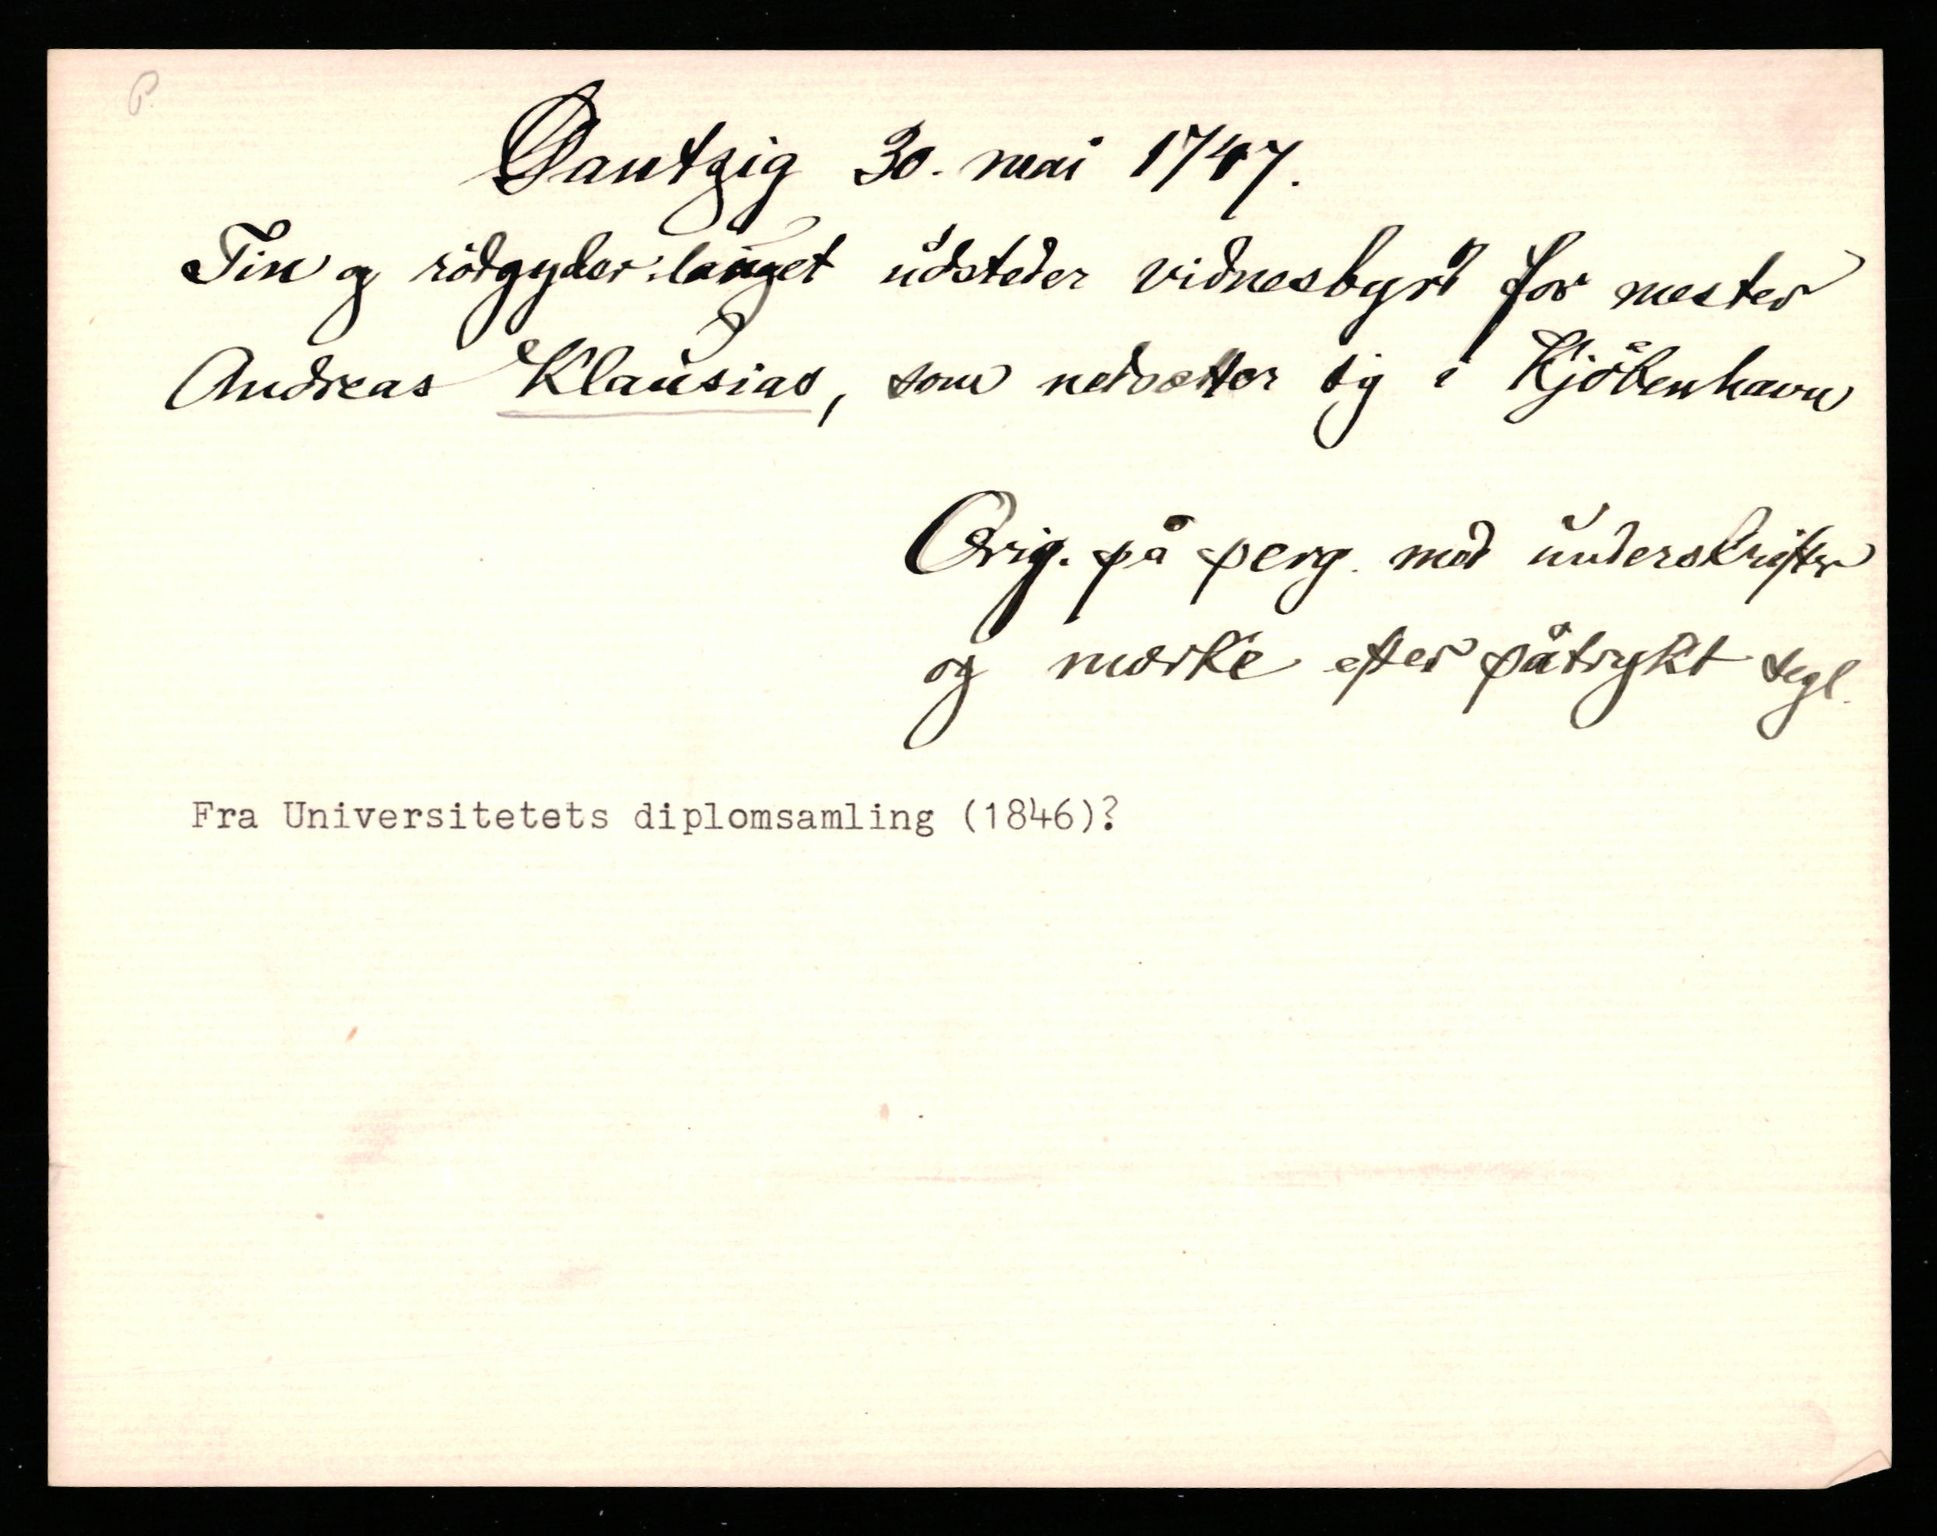 P.
Dantzig 30. mai 1747.
Tin og rödgyder lauget udsteder vidnesbyrd for mester
Andreas Klausias, som nedsætter sig i Kjöbenhavn
Orig. på perg. med underskrifter
og mærke efter påtrykt segl.
Fra Universitetets diplomsamling (1846)?